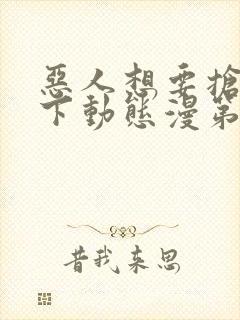 惡人想要搶救一
下動態漫第
昔我來思